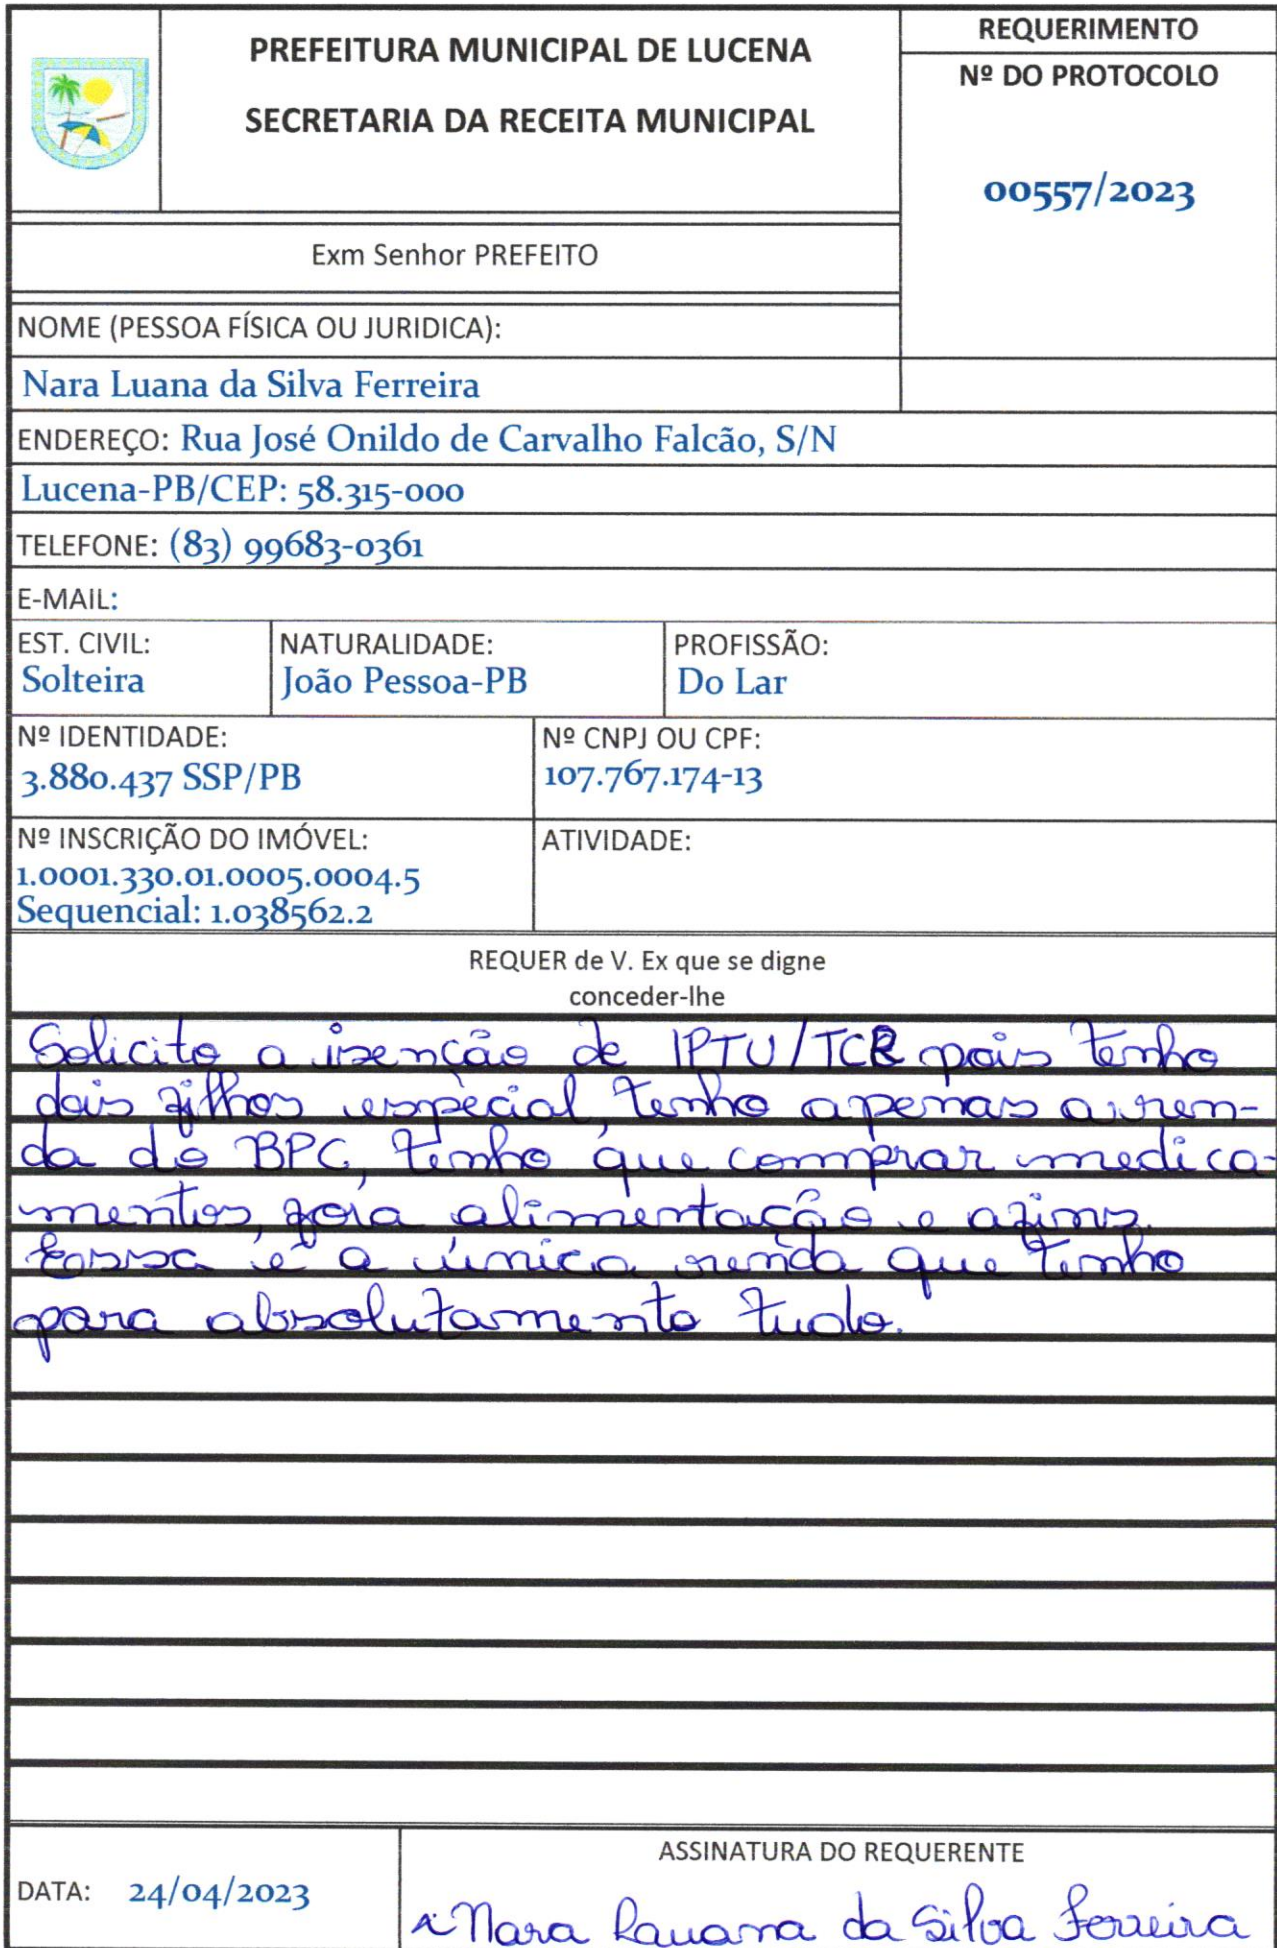 PREFEITURA MUNICIPAL DE LUCENA
SECRETARIA DA RECEITA MUNICIPAL
REQUERIMENTO
Nº DO PROTOCOLO
00557/2023
Exm Senhor PREFEITO
NOME (PESSOA FÍSICA OU JURIDICA):
Nara Luana da Silva Ferreira
ENDEREÇO: Rua José Onildo de Carvalho Falcão, S/N
Lucena-PB/CEP: 58.315-000
TELEFONE: (83) 99683-0361
E-MAIL:
EST. CIVIL:
Solteira
NATURALIDADE:
João Pessoa-PB
PROFISSÃO:
Do Lar
Nº IDENTIDADE:
3.880.437 SSP/PB
Nº CNPJ OU CPF:
107.767.174-13
Nº INSCRIÇÃO DO IMÓVEL:
1.0001.330.01.0005.0004.5
Sequencial: 1.038562.2
ATIVIDADE:
REQUER de V. Ex que se digne
conceder-lhe
Solicito a isenção de IPTU/TCR pois tenho
dois filhos especial, tenho apenas a ren-
da do BPC, tenho que comprar medica-
mentos, fora alimentação e afins.
Essa é a única renda que tenho
para absolutamento tudo.
DATA: 24/04/2023
ASSINATURA DO REQUERENTE
x Nara Lauana da Silva Ferreira